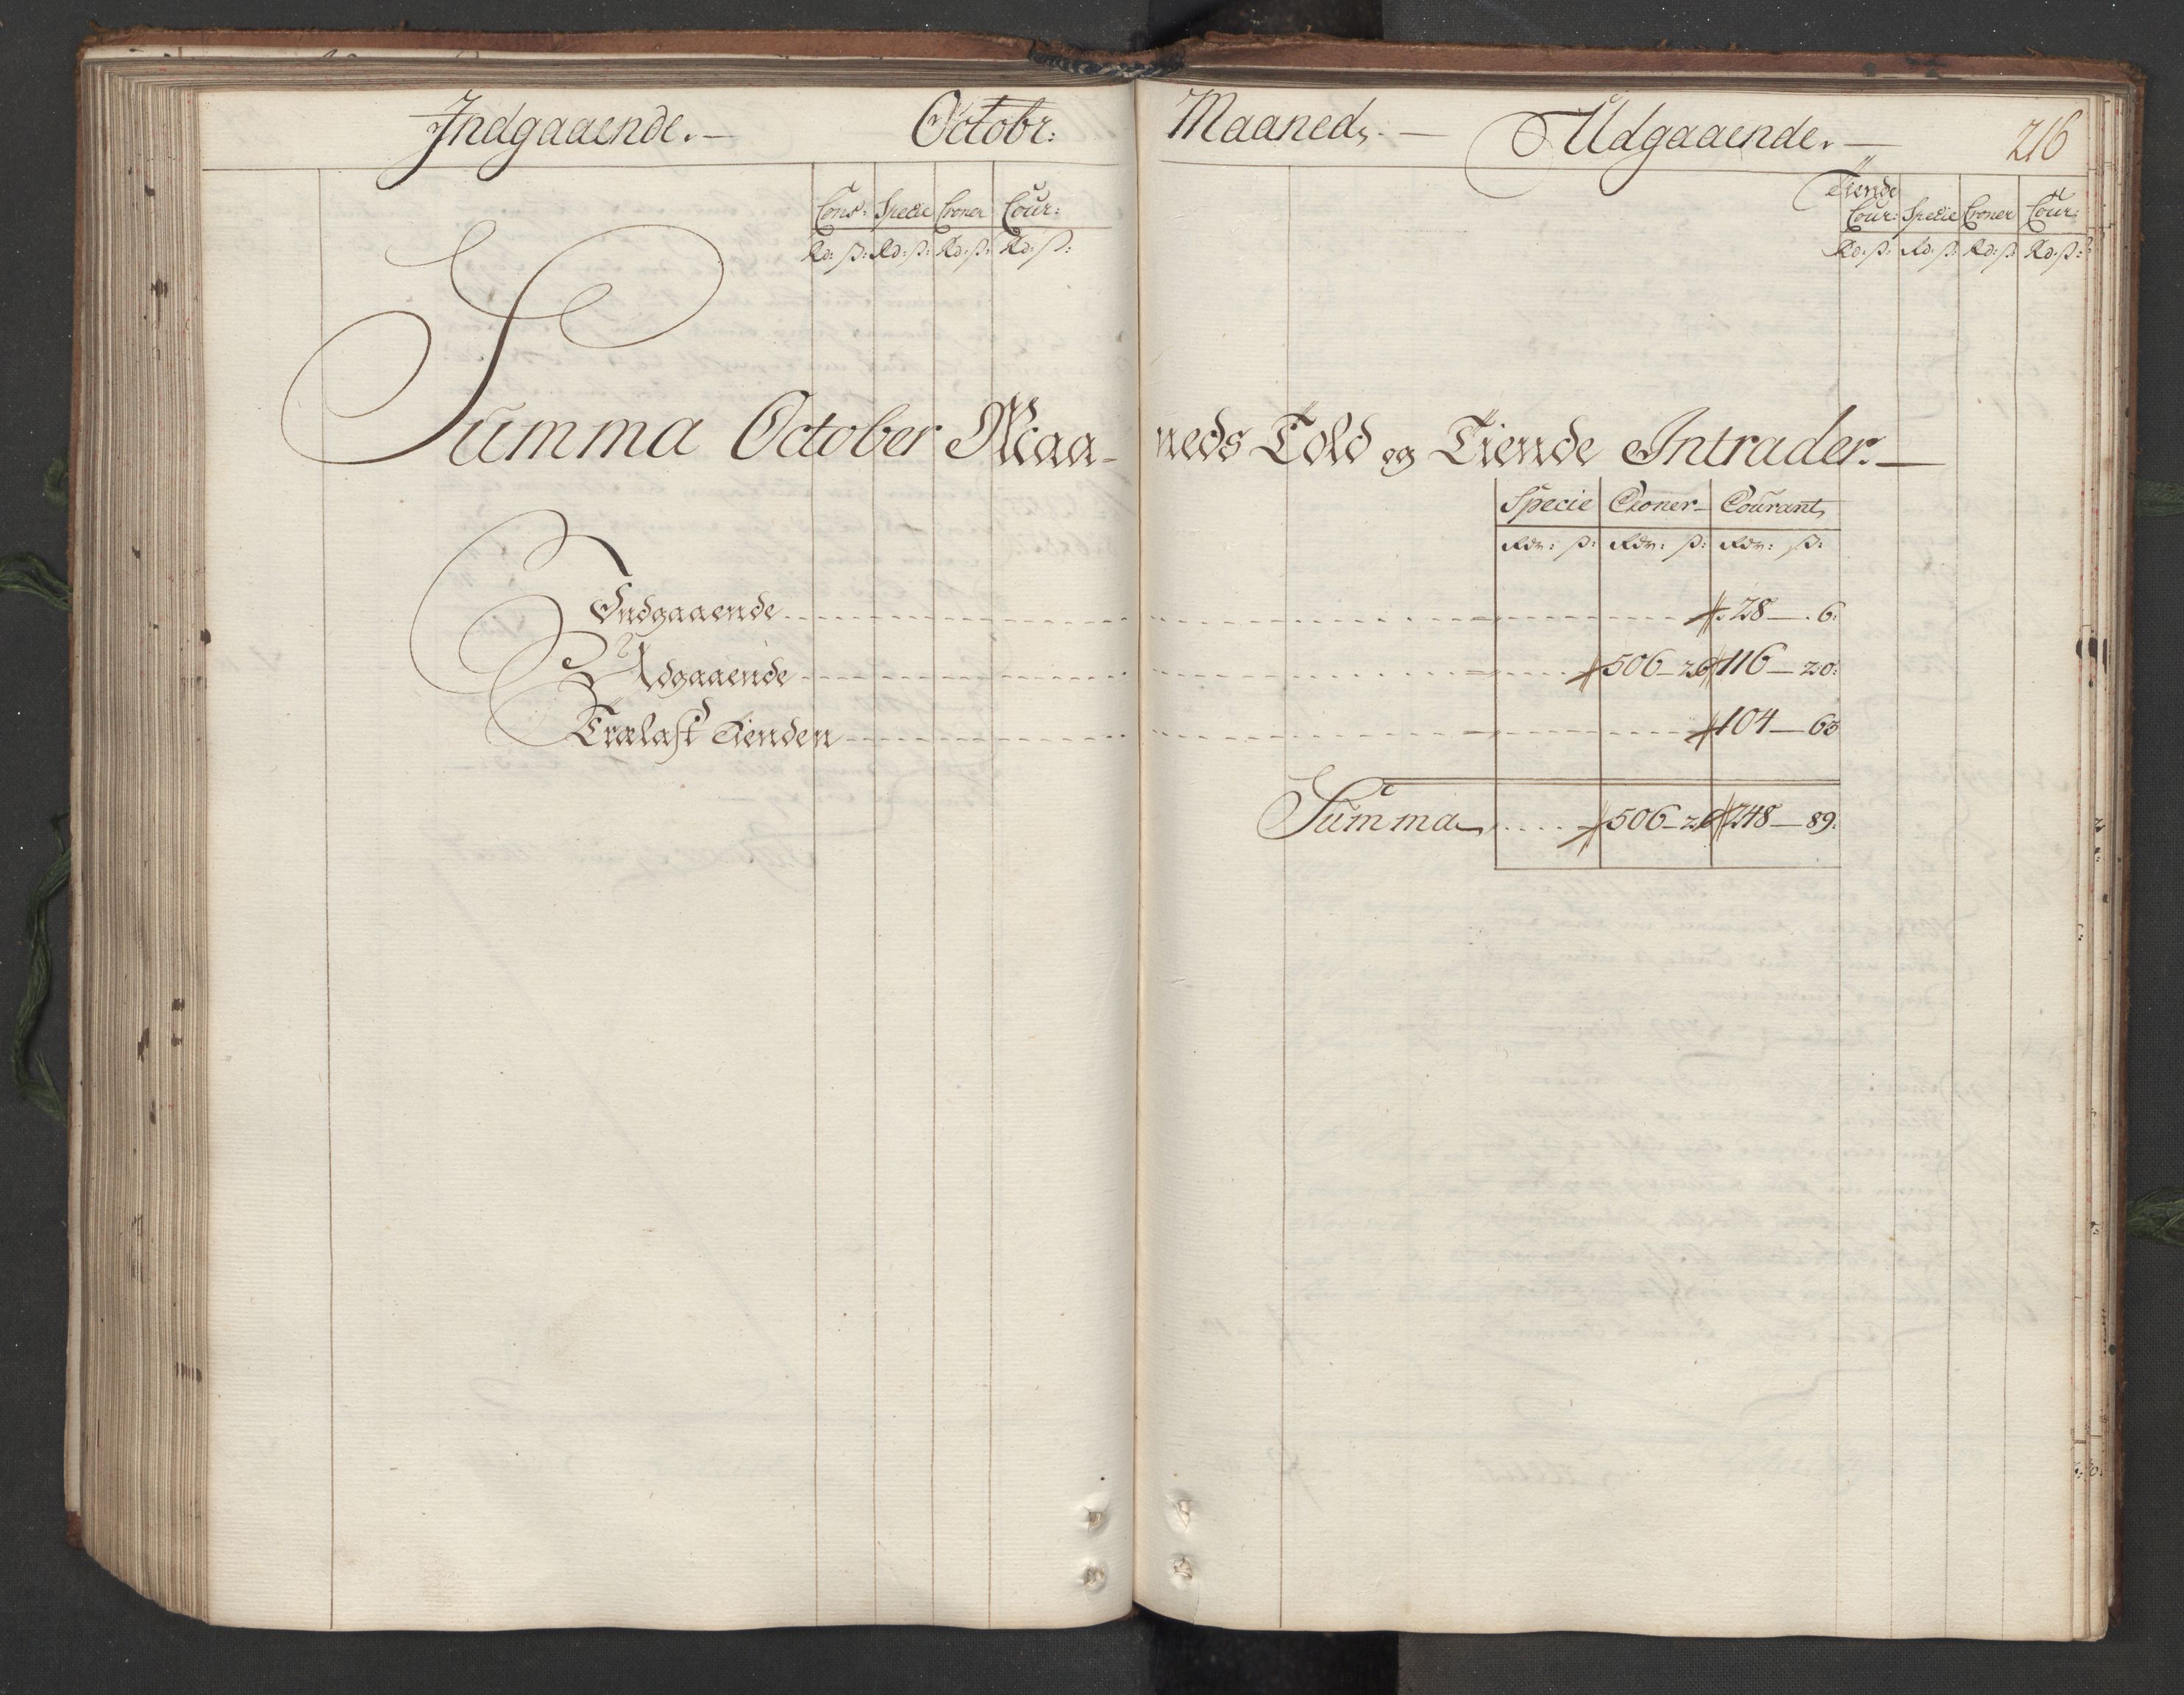 Indgaaende. — Octobr: Maaneds. — Udgaaende. — 216
Cons: Specie Croner Cour:
Rd: ß: Rd: ß: Rd: ß: Rd: ß:
Tiende
Cour: Specie Croner Cour:
Rd: ß: Rd: ß: Rd: ß: Rd: ß:
Summa October Maa- neds Told og Tiende Intrader. —
Specie Croner Courant
Rdr: ß: Rdr: ß: Rdr: ß:
Indgaaende 28 — 6:
Udgaaende 506 — 26 116 — 20:
Trælast Tienden 104 — 63
Summa 506 — 26 248 — 89: